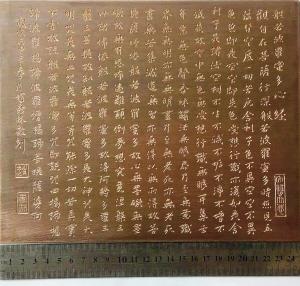 般若波羅蜜多心經
觀自在菩薩行深般若波羅蜜多時照見五
蘊皆空度一切苦厄舍利子色不異空空不異
色色即是空空即是色受想行識亦復如是舍
利子是諸法空相不生不滅不垢不淨不增不
減是故空中無色無受想行識無眼耳鼻舌
身意無色聲香味觸法無眼界乃至無意識
界無無明亦無無明盡乃至無老死亦無老死
盡無苦集滅道無智亦無得以無所得故菩
提薩埵依般若波羅蜜多故心無罣礙無罣礙
故無有恐怖遠離顛倒夢想究竟涅槃三
世諸佛依般若波羅蜜多故得阿耨多羅三
藐三菩提故知般若波羅蜜多是大神咒是大
明咒是無上咒是無等等咒能除一切苦真實
不虛故說般若波羅蜜多咒即說咒曰揭諦揭
諦波羅揭諦波羅僧揭諦菩提薩婆訶